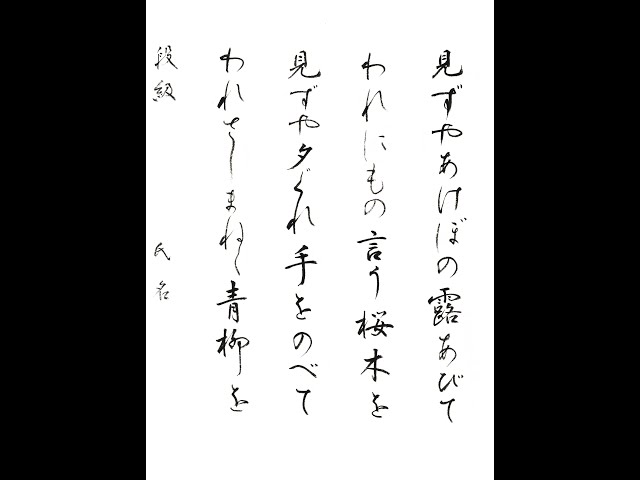 見ずやあけぼの露あびて
われにもの言う桜木を
見ずや夕ぐれ手をのべて
われさしまねく青柳を
段級 氏名